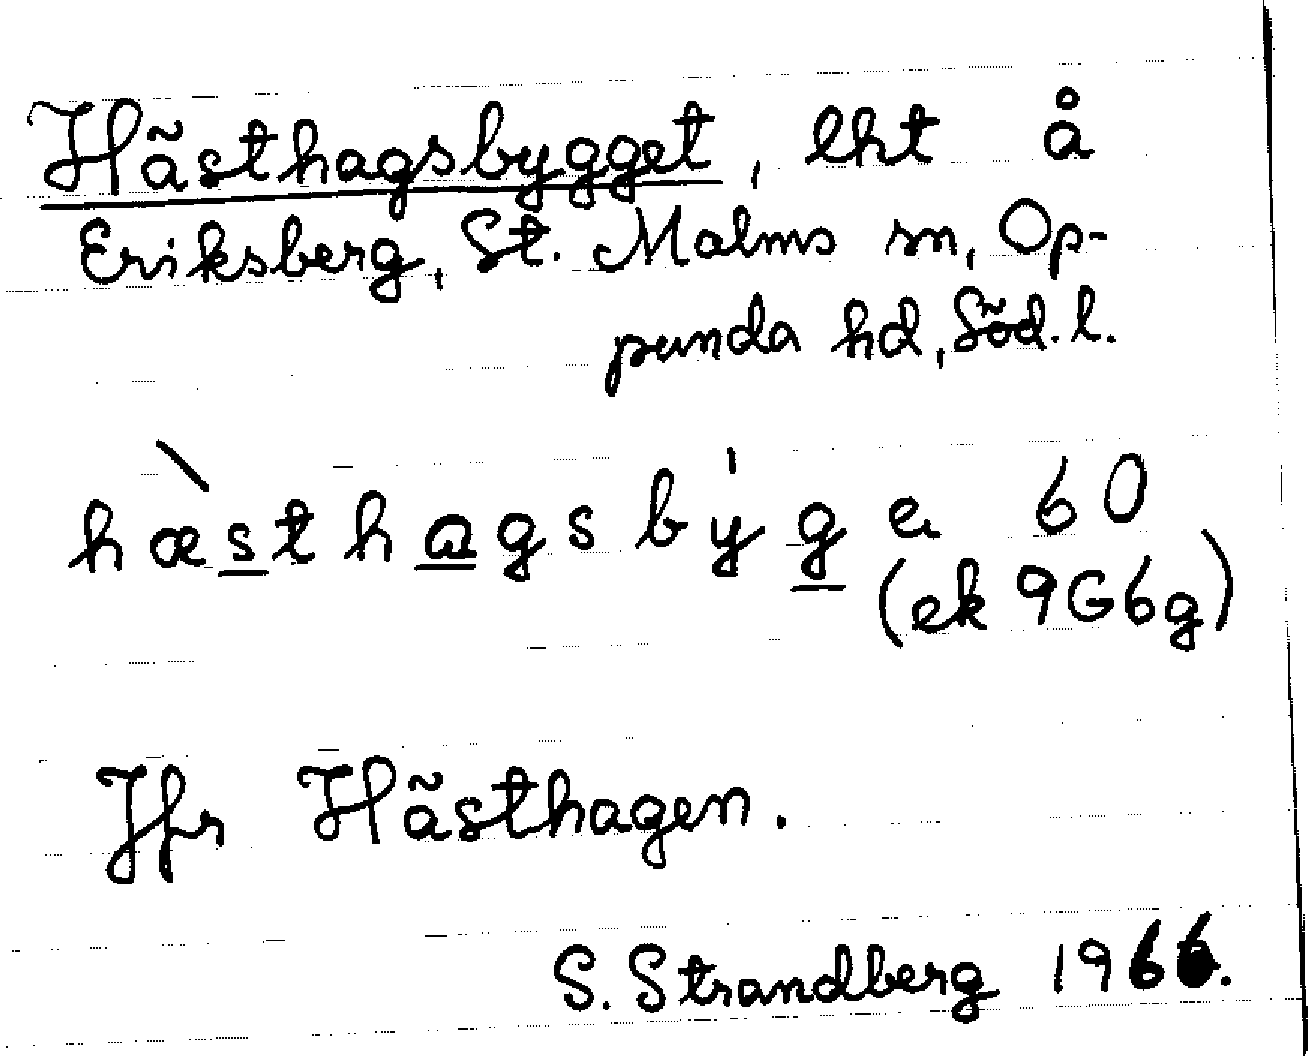 Hästhagsbygget, lht å
Eriksberg, St. Malms sn, Op-
punda hd, Söd. l.
hæ̀sthagsby̍ge 60
(ek 9G6g)
Jfr Hästhagen.
S. Strandberg 1966.